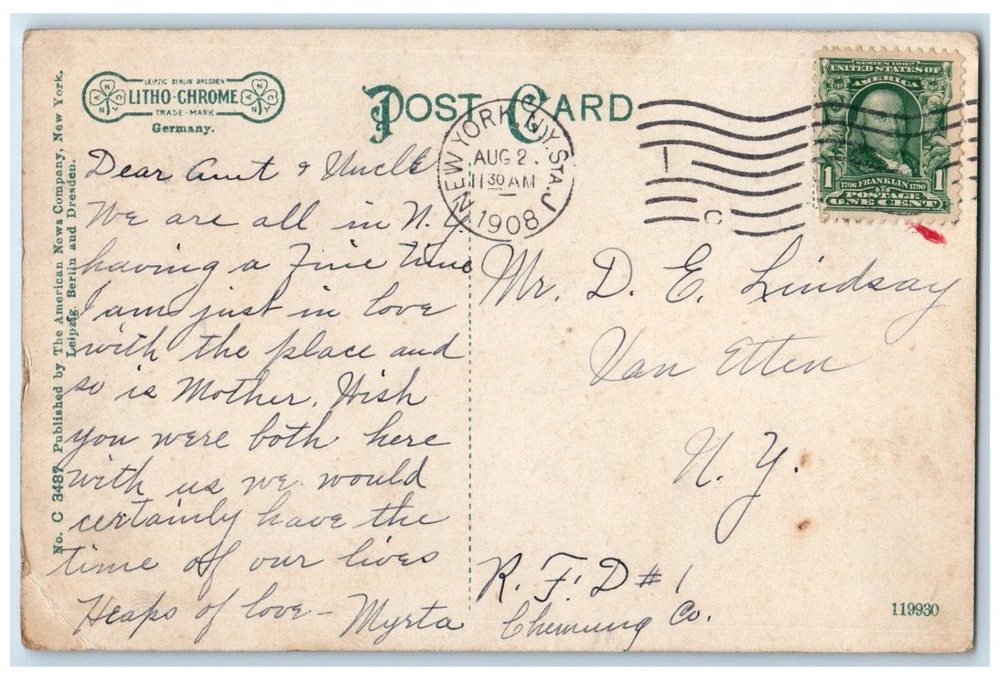 LEIPZIC BERLIN DRESDEN
LITHO-CHROME
TRADE-MARK
Germany.
POST CARD
NEW YORK, N.Y. STA. J
AUG 2.
11 30 AM
1908
SERIES 1902
UNITED STATES OF
AMERICA
1 1
1706 FRANKLIN 1790
POSTAGE
ONE CENT
No. C 3487 Published by The American News Company, New York.
Leipzig, Berlin and Dresden.
Dear Aunt & Uncle
We are all in N.Y.
having a Fine Time
I am just in love
with the place and
so is Mother. Wish
you were both here
with us we would
certainly have the
time of our lives
Heaps of love – Myrta
Mr. D. E. Lindsay
Van Etten
N. Y.
R. F. D # 1
Chemung Co.
119930